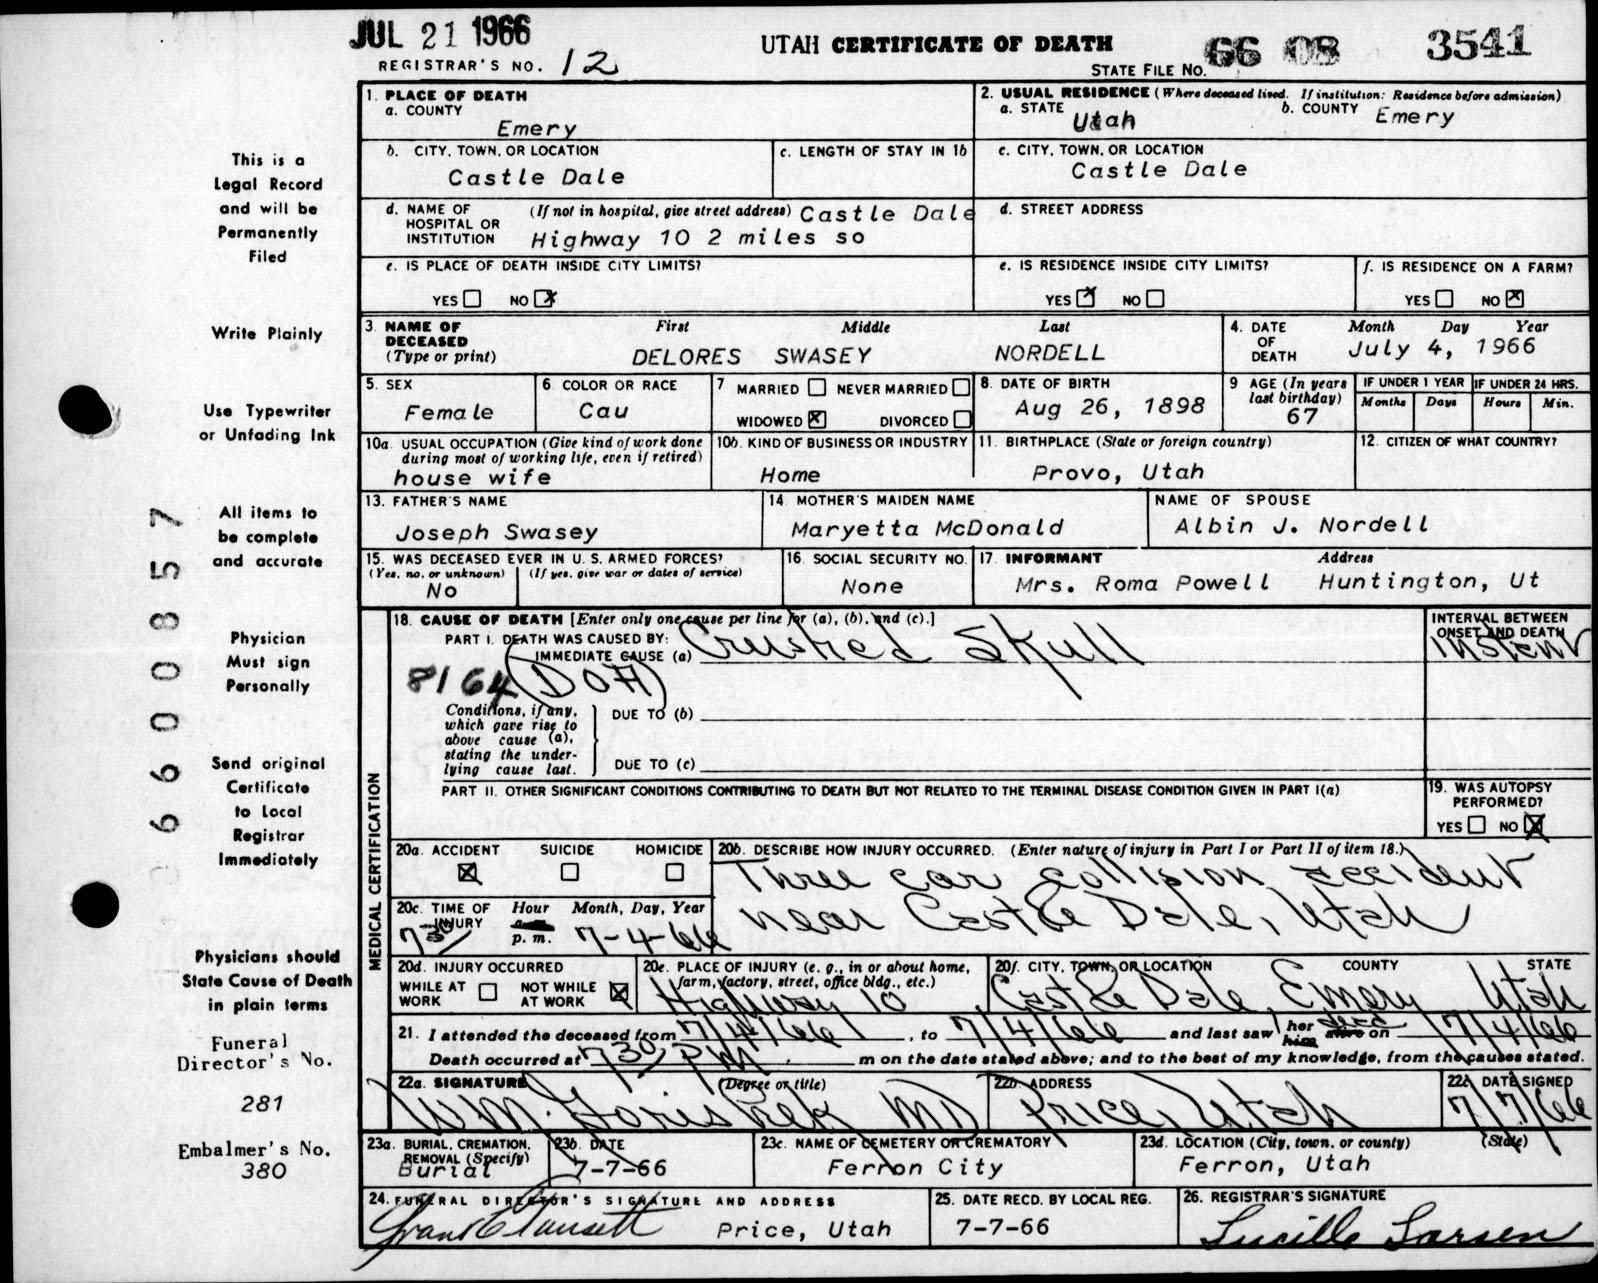 JUL 21 1966
REGISTRAR'S NO. 12
UTAH CERTIFICATE OF DEATH
STATE FILE NO. 66 08 3541
This is a
Legal Record
and will be
Permanently
Filed
Write Plainly
Use Typewriter
or Unfading Ink
All items to
be complete
and accurate
Physician
Must sign
Personally
Send original
Certificate
to Local
Registrar
Immediately
Physicians should
State Cause of Death
in plain terms
Funeral
Director's No.
281
Embalmer's No.
380
6600857
1. PLACE OF DEATH
a. COUNTY
Emery
2. USUAL RESIDENCE (Where deceased lived. If institution: Residence before admission)
a. STATE Utah b. COUNTY Emery
b. CITY, TOWN, OR LOCATION
Castle Dale
c. LENGTH OF STAY IN 1b
c. CITY, TOWN, OR LOCATION
Castle Dale
d. NAME OF HOSPITAL OR INSTITUTION (If not in hospital, give street address) Castle Dale
Highway 10 2 miles so
d. STREET ADDRESS
e. IS PLACE OF DEATH INSIDE CITY LIMITS?
YES NO x
e. IS RESIDENCE INSIDE CITY LIMITS?
YES x NO
f. IS RESIDENCE ON A FARM?
YES NO x
3. NAME OF DECEASED (Type or print)
First Middle Last
DELORES SWASEY NORDELL
4. DATE OF DEATH
Month Day Year
July 4, 1966
5. SEX
Female
6. COLOR OR RACE
Cau
7 MARRIED NEVER MARRIED
WIDOWED x DIVORCED
8. DATE OF BIRTH
Aug 26, 1898
9 AGE (In years last birthday)
67
IF UNDER 1 YEAR
Months Days
IF UNDER 24 HRS.
Hours Min.
10a. USUAL OCCUPATION (Give kind of work done
during most of working life, even if retired)
house wife
10b. KIND OF BUSINESS OR INDUSTRY
Home
11. BIRTHPLACE (State or foreign country)
Provo, Utah
12. CITIZEN OF WHAT COUNTRY?
13. FATHER'S NAME
Joseph Swasey
14. MOTHER'S MAIDEN NAME
Maryetta McDonald
NAME OF SPOUSE
Albin J. Nordell
15. WAS DECEASED EVER IN U. S. ARMED FORCES?
(Yes, no, or unknown) (If yes, give war or dates of service)
No
16. SOCIAL SECURITY NO.
None
17. INFORMANT Address
Mrs. Roma Powell Huntington, Ut
MEDICAL CERTIFICATION
18. CAUSE OF DEATH [Enter only one cause per line for (a), (b), and (c).]
PART I. DEATH WAS CAUSED BY:
IMMEDIATE CAUSE (a) Crushed Skull
8164 (DOA)
INTERVAL BETWEEN
ONSET AND DEATH
Instant
Conditions, if any,
which gave rise to
above cause (a),
stating the under-
lying cause last.
DUE TO (b)
DUE TO (c)
PART II. OTHER SIGNIFICANT CONDITIONS CONTRIBUTING TO DEATH BUT NOT RELATED TO THE TERMINAL DISEASE CONDITION GIVEN IN PART I(a)
19. WAS AUTOPSY
PERFORMED?
YES NO X
20a. ACCIDENT SUICIDE HOMICIDE
X
20b. DESCRIBE HOW INJURY OCCURRED. (Enter nature of injury in Part I or Part II of item 18.)
Three car collision accident
near Castle Dale, Utah
20c. TIME OF INJURY
Hour Month, Day, Year
7 30 a. m. p. m. 7-4-66
20d. INJURY OCCURRED
WHILE AT WORK NOT WHILE AT WORK X
20e. PLACE OF INJURY (e. g., in or about home,
farm, factory, street, office bldg., etc.)
Highway 10
20f. CITY, TOWN, OR LOCATION COUNTY STATE
Castle Dale, Emery Utah
21. I attended the deceased from 7/4/66, to 7/4/66 and last saw her him dead alive on 7/4/66
Death occurred at 7 30 PM m on the date stated above; and to the best of my knowledge, from the causes stated.
22a. SIGNATURE (Degree or title)
Wm. Gorishek MD
22b. ADDRESS
Price, Utah
22c DATE SIGNED
7/7/66
23a. BURIAL, CREMATION,
REMOVAL (Specify)
Burial
23b. DATE
7-7-66
23c. NAME OF CEMETERY OR CREMATORY
Ferron City
23d. LOCATION (City, town, or county) (State)
Ferron, Utah
24. FUNERAL DIRECTOR'S SIGNATURE AND ADDRESS
Price, Utah
25. DATE RECD. BY LOCAL REG.
7-7-66
26. REGISTRAR'S SIGNATURE
Lucille Larsen